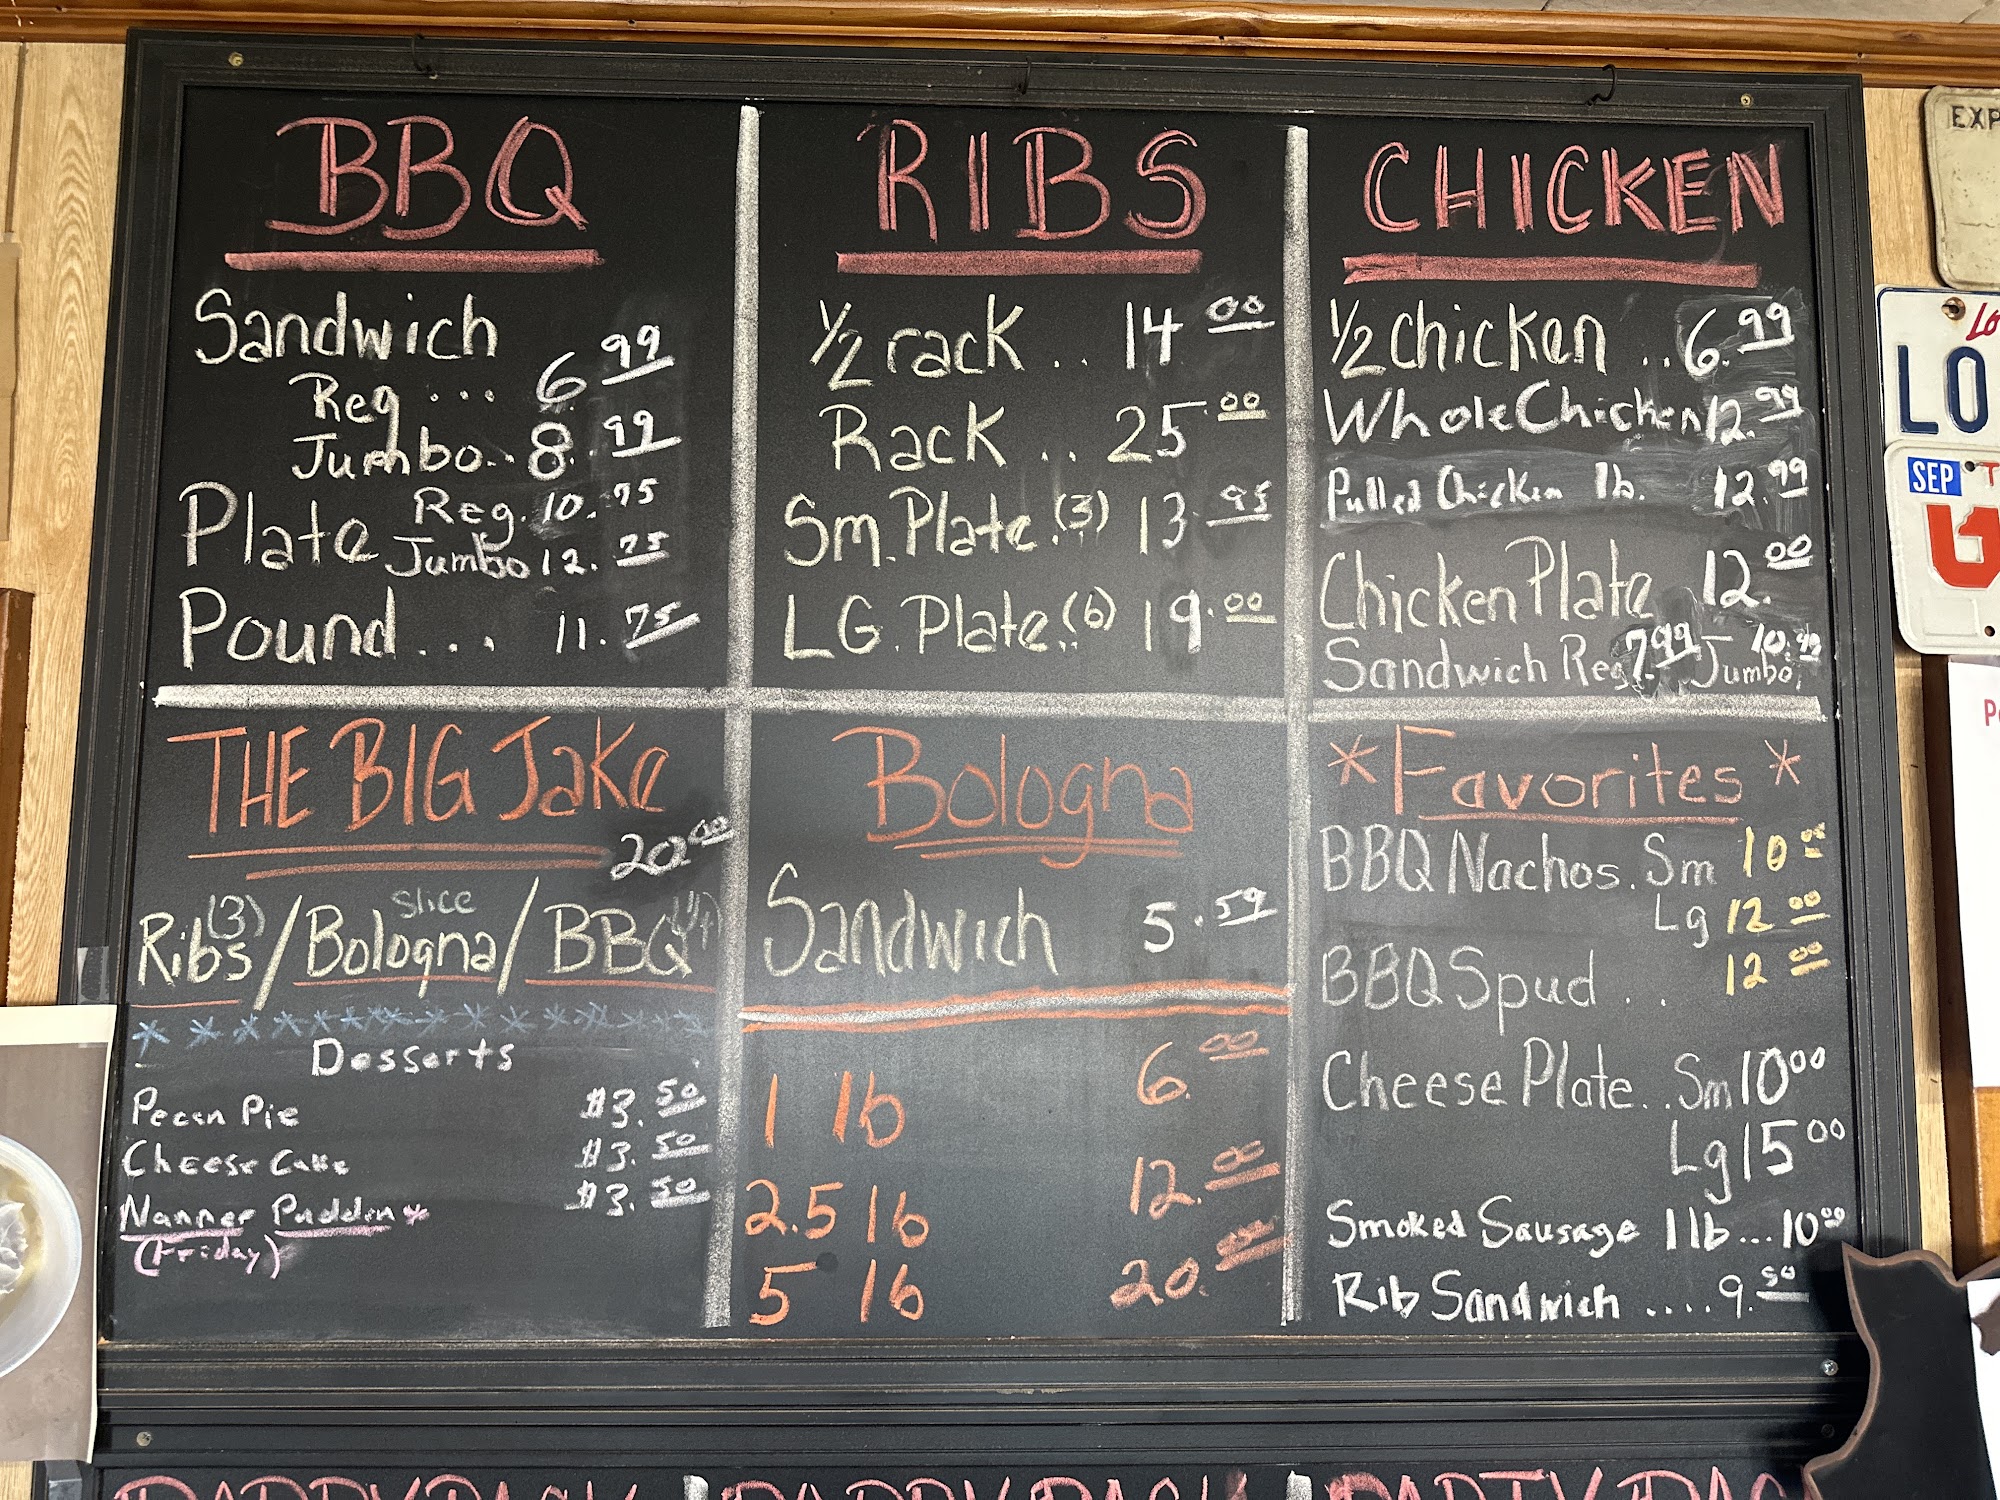 BBQ
Sandwich
Reg ... 6.99
Jumbo.. 8.99
Plate Reg. 10.75
Jumbo 12.75
Pound... 11.75
RIBS
1/2 rack .. 14.00
Rack .. 25.00
Sm. Plate.(3) 13.95
LG. Plate..(6) 19.00
CHICKEN
1/2 chicken ..6.99
Whole Chicken 12.99
Pulled Chicken lb. 12.99
Chicken Plate 12.00
Sandwich Reg 7.99 Jumbo 10.99
THE BIG Jake
20.00
Ribs (3) / Bologna slice / BBQ
Desserts
Pecan Pie $3.50
Cheese Cake $3.50
Nanner Puddin* $3.50
(Friday)
Bologna
Sandwich 5.59
1 lb 6.00
2.5 lb 12.00
5 lb 20.00
*Favorites*
BBQ Nachos. Sm 10.00
Lg 12.00
BBQ Spud .. 12.00
Cheese Plate.. Sm 10.00
Lg 15.00
Smoked Sausage 1 lb...10.00
Rib Sandwich ....9.50
EXP
LO
SEP